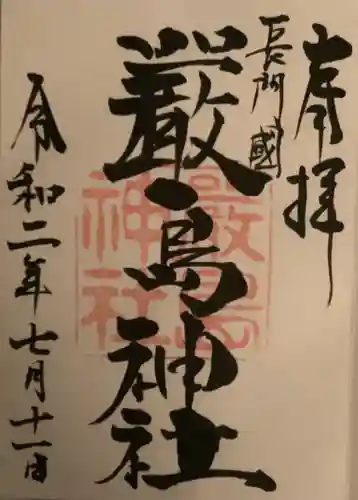 奉拝
長門國
厳島神社
厳島神社
令和二年七月十一日